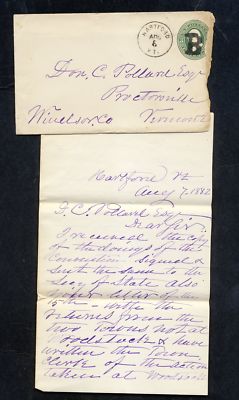 HARTFORD
AUG
6
VT.
B
Don. C. Pollard Esq
Proctorsville
Windsor. Co Vermont
Hartford Vt
Aug 7, 1882
D. C. Pollard Esq
Dear Sir;
I received the
of the doings of the
Convention signed &
sent the same to the
Secy of State also
your letter of
15th
returns from the
two towns not at
Woodstock & have
written the Town
Clerks of the action
taken at Woodstock